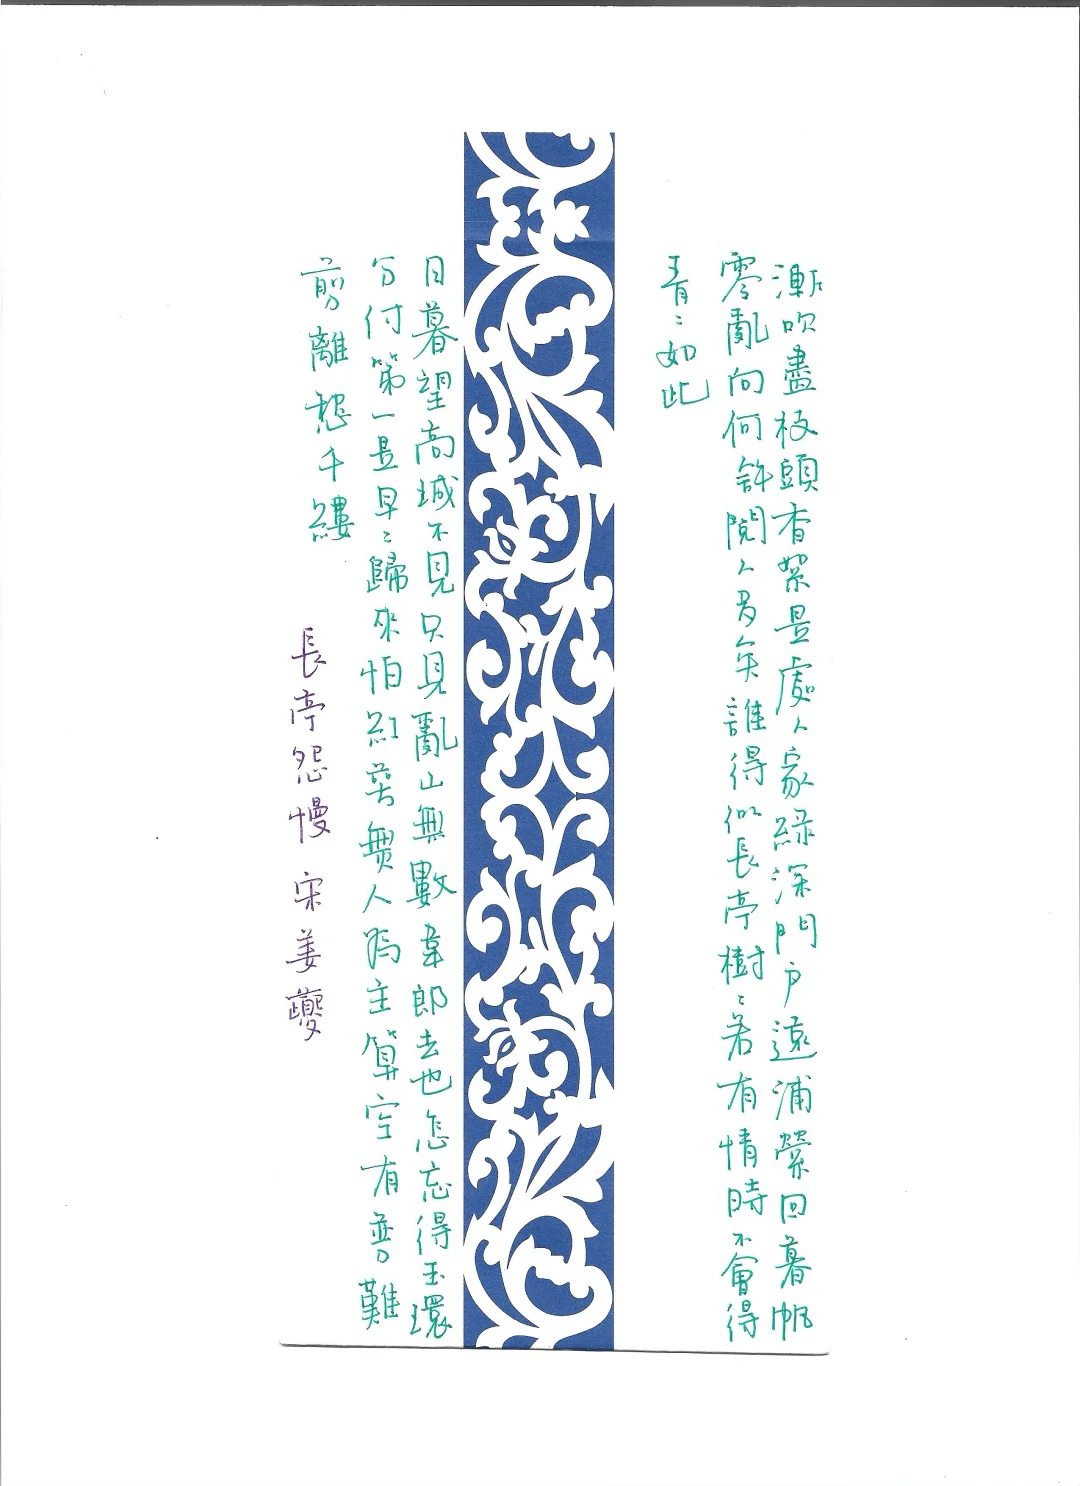 漸吹盡枝頭香絮是處人家綠深門戶遠浦縈回暮帆
零亂向何許閱人多矣誰得似長亭樹〻若有情時不會得
青〻如此
日暮望高城不見只見亂山無數韋郎去也怎忘得玉環
分付第一是早〻歸來怕紅萼無人為主算空有並刀難
剪離愁千縷
長亭怨慢 宋姜夔